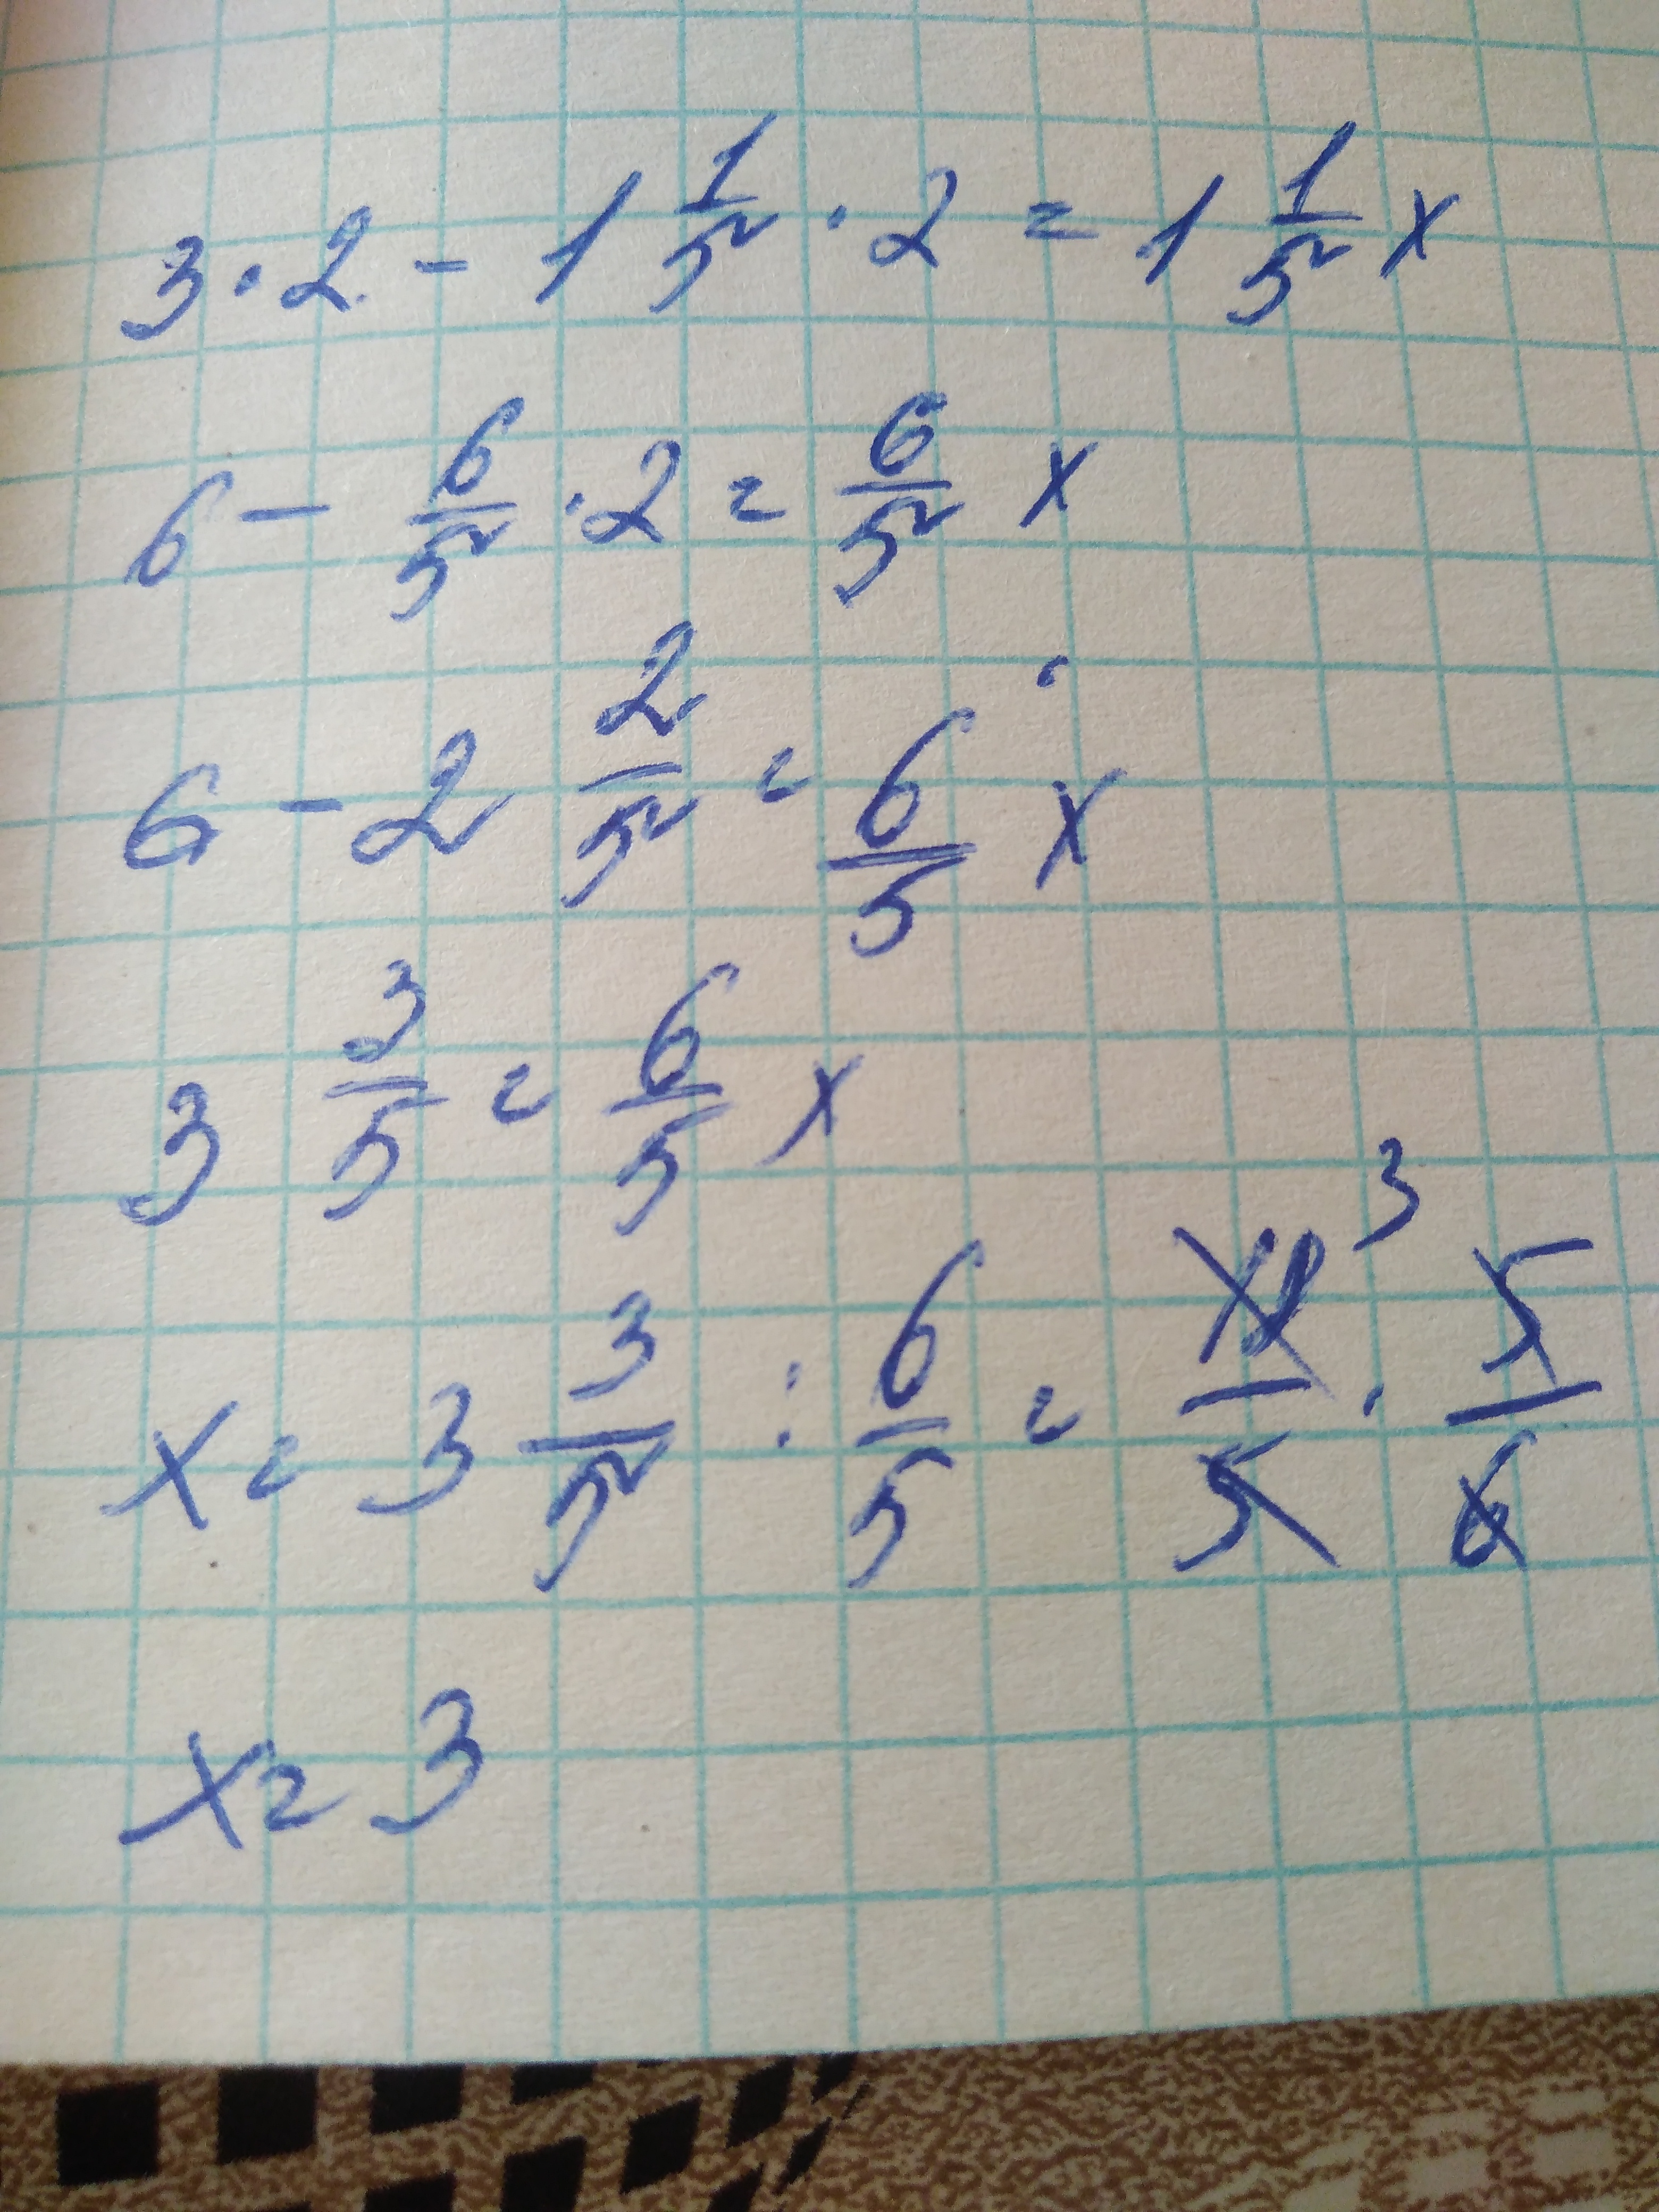 3 · 2 - 1 1/5 · 2 = 1 1/5 x
6 - 6/5 · 2 = 6/5 x
6 - 2 2/5 = 6/5 x
3 3/5 = 6/5 x
x = 3 3/5 : 6/5 = 18/5 3 · 5/6
x = 3